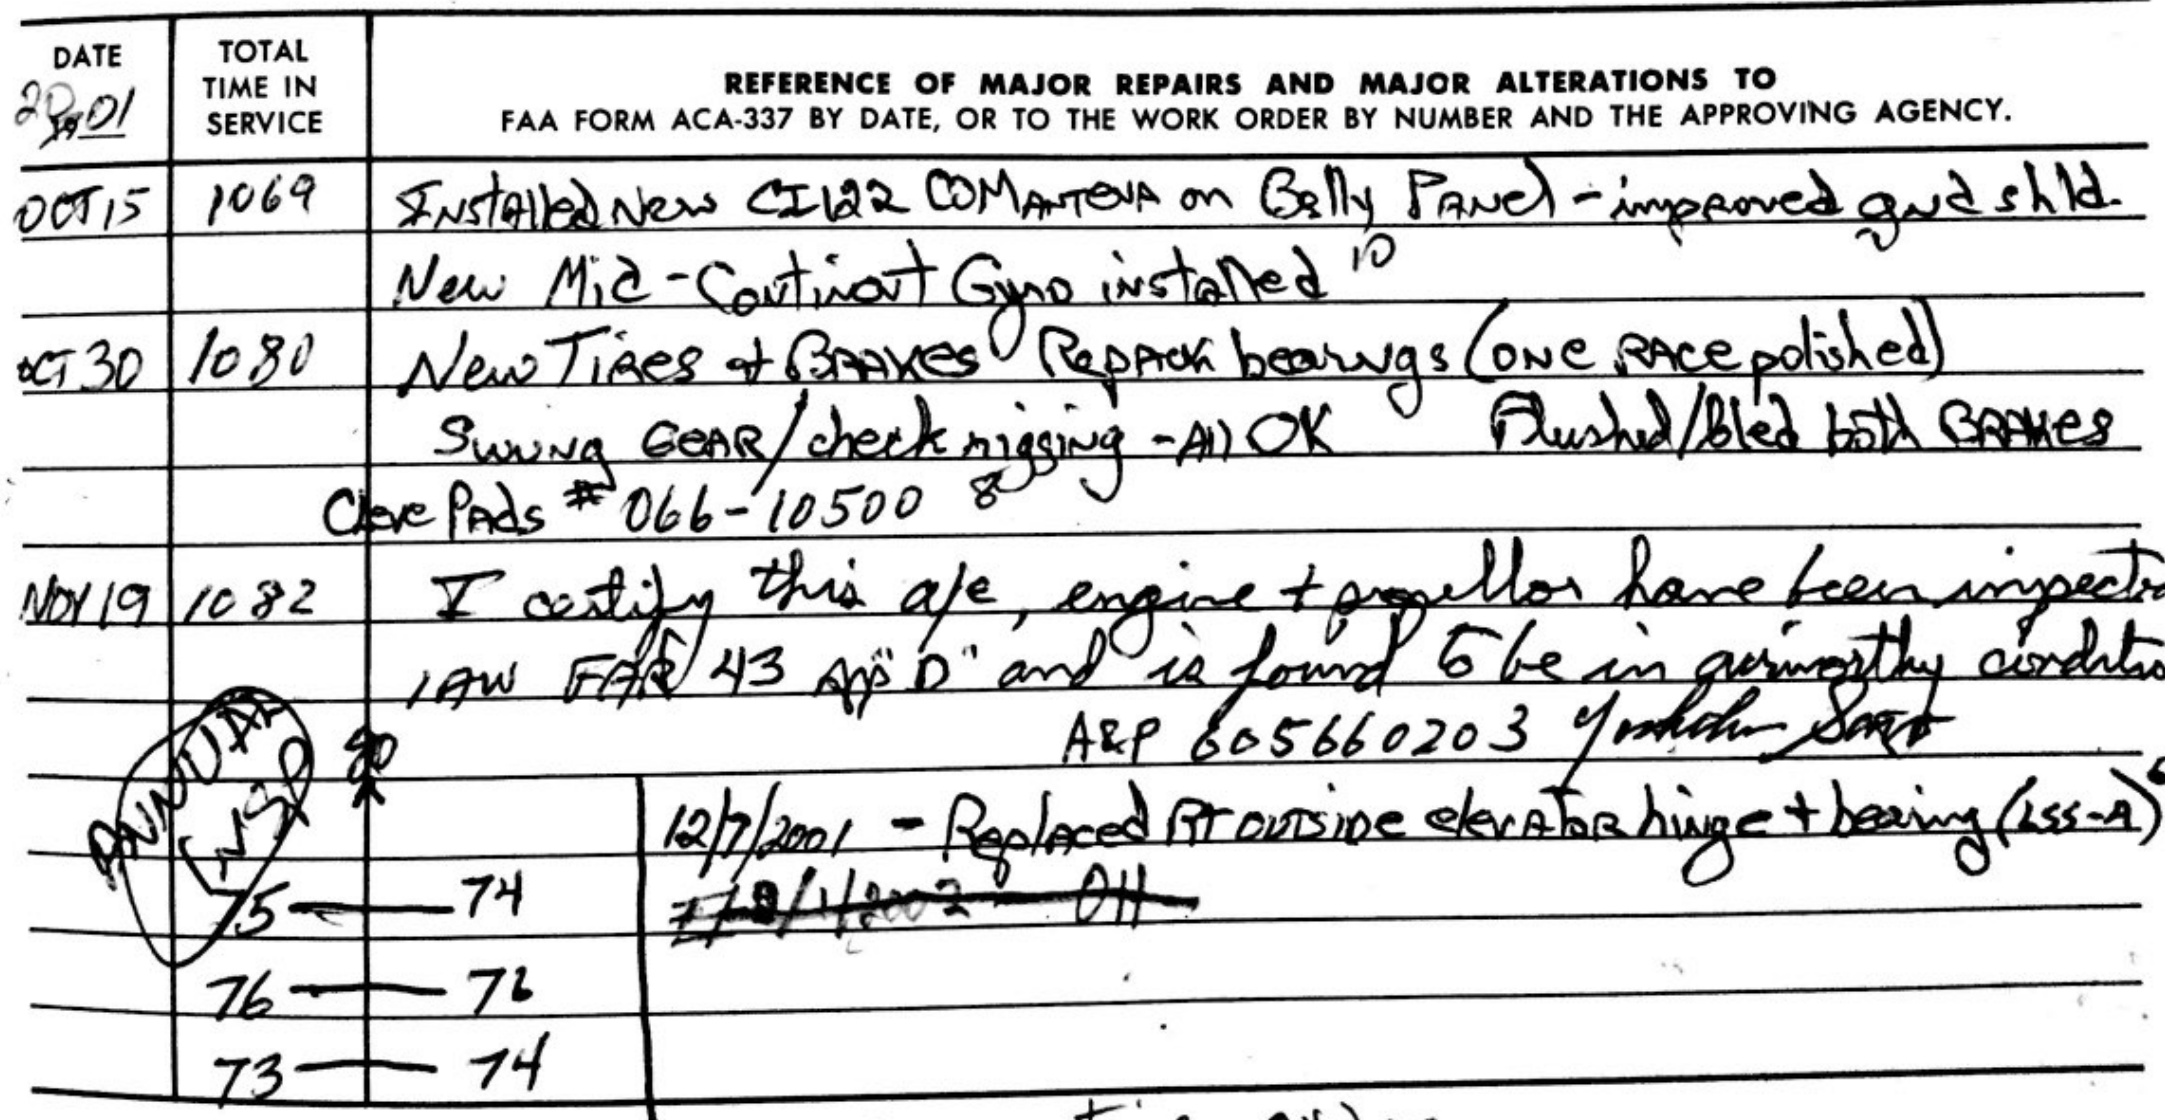 DATE
TOTAL
TIME IN
SERVICE
REFERENCE OF MAJOR REPAIRS AND MAJOR ALTERATIONS TO
FAA FORM ACA-337 BY DATE, OR TO THE WORK ORDER BY NUMBER AND THE APPROVING AGENCY.
2001
OCT 15 1069 Installed New CI122 COM Antena on Belly Panel - improved gnd shld.
New Mid-Continent Gyro installed 10
OCT 30 1080 New Tires & BRAKES Repack bearings (ONE RACE polished)
Swung GEAR/check rigging - All OK Flushed/bled both BRAKES
Cleve Pads # 066-10500 8
NOV 19 1082 I certify this a/c, engine + propellor have been inspected
IAW FAR 43 App "D" and is found to be in airworthy condition
A&P 605660203
ANNUAL INSP
80
12/7/2001 - Replaced RT OUTSIDE elevator hinge + bearing (LSS-A)
75 — 74
76 — 76
73 — 74